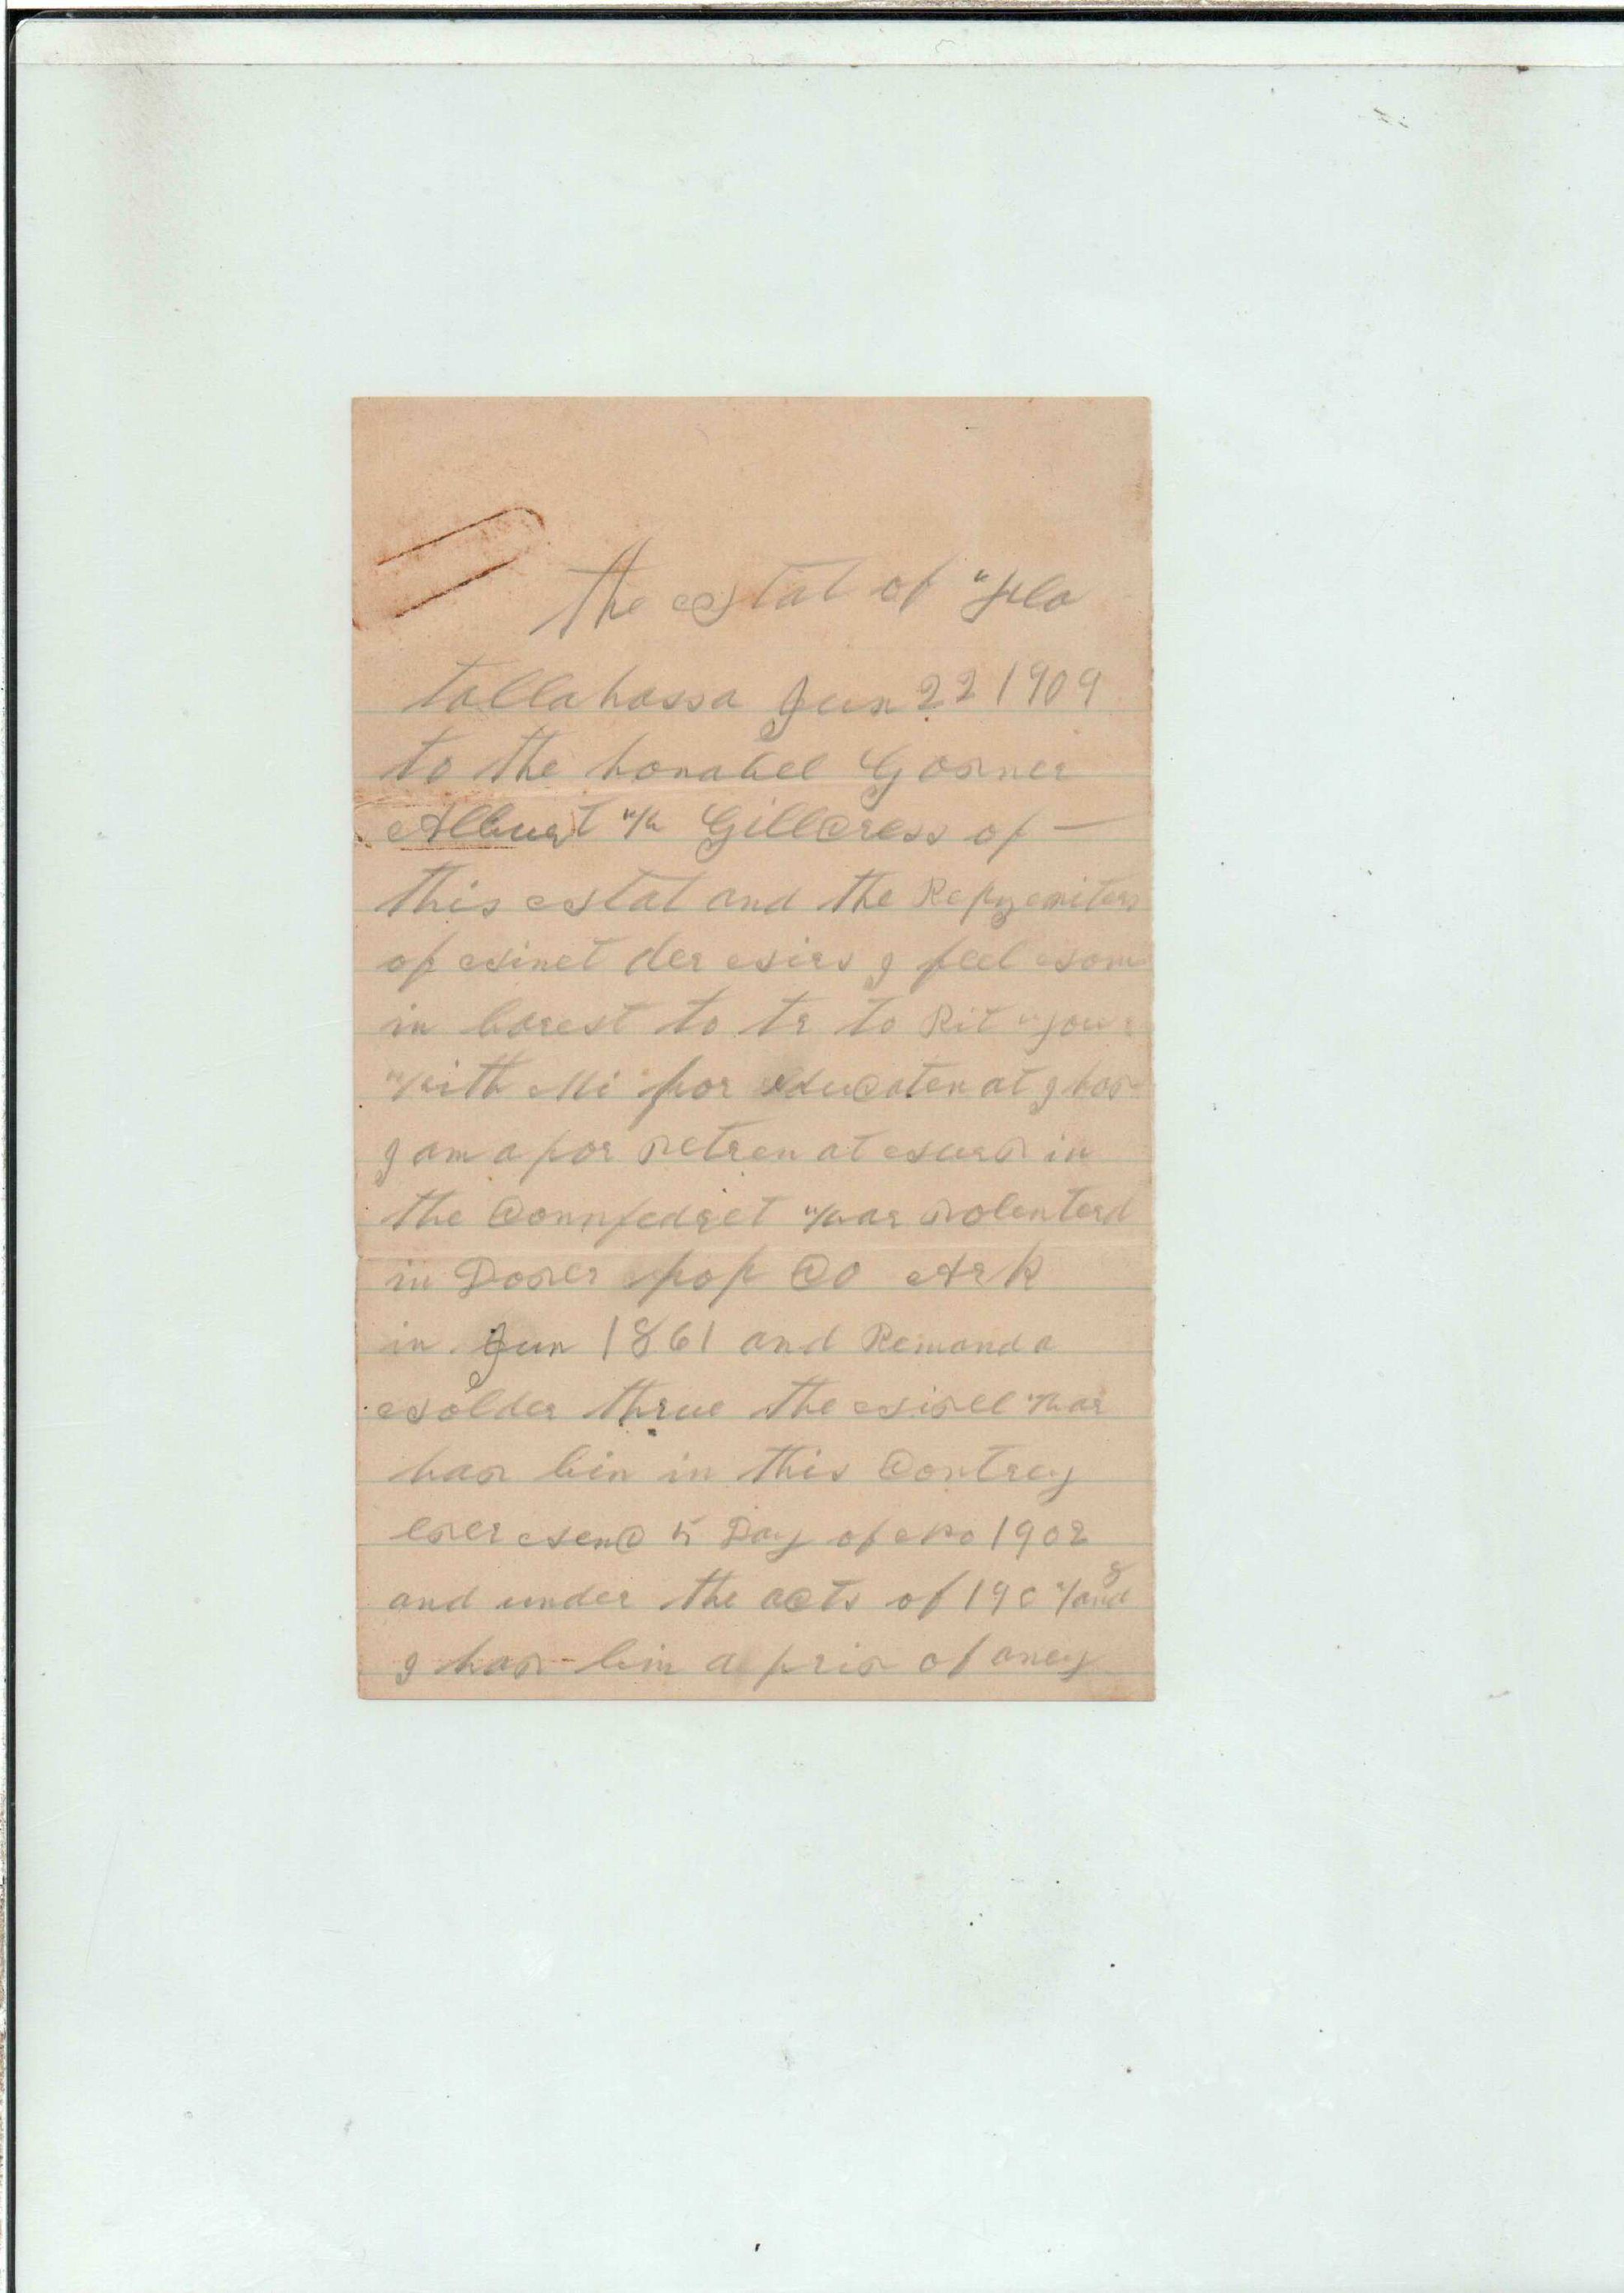 the Stat of Fla
tallahassa Jun 22 1909
to the honabel Govner
Alburt W Gillcress of —
this Stat and the
of Sinet der Sirs I feel Som
in to to Rit you
With Mi por Educaten at I hav
I am a por vetren at Surv in
the Connfedret War volenterd
in Dover pop Co Ark
in Jun 1861 and Remand a
Solder thrue the Sivel War
hav bin in this Contrey
Ever Senc 5 Day of No 1902
and under the acts of and
I hav bin a priv of aney